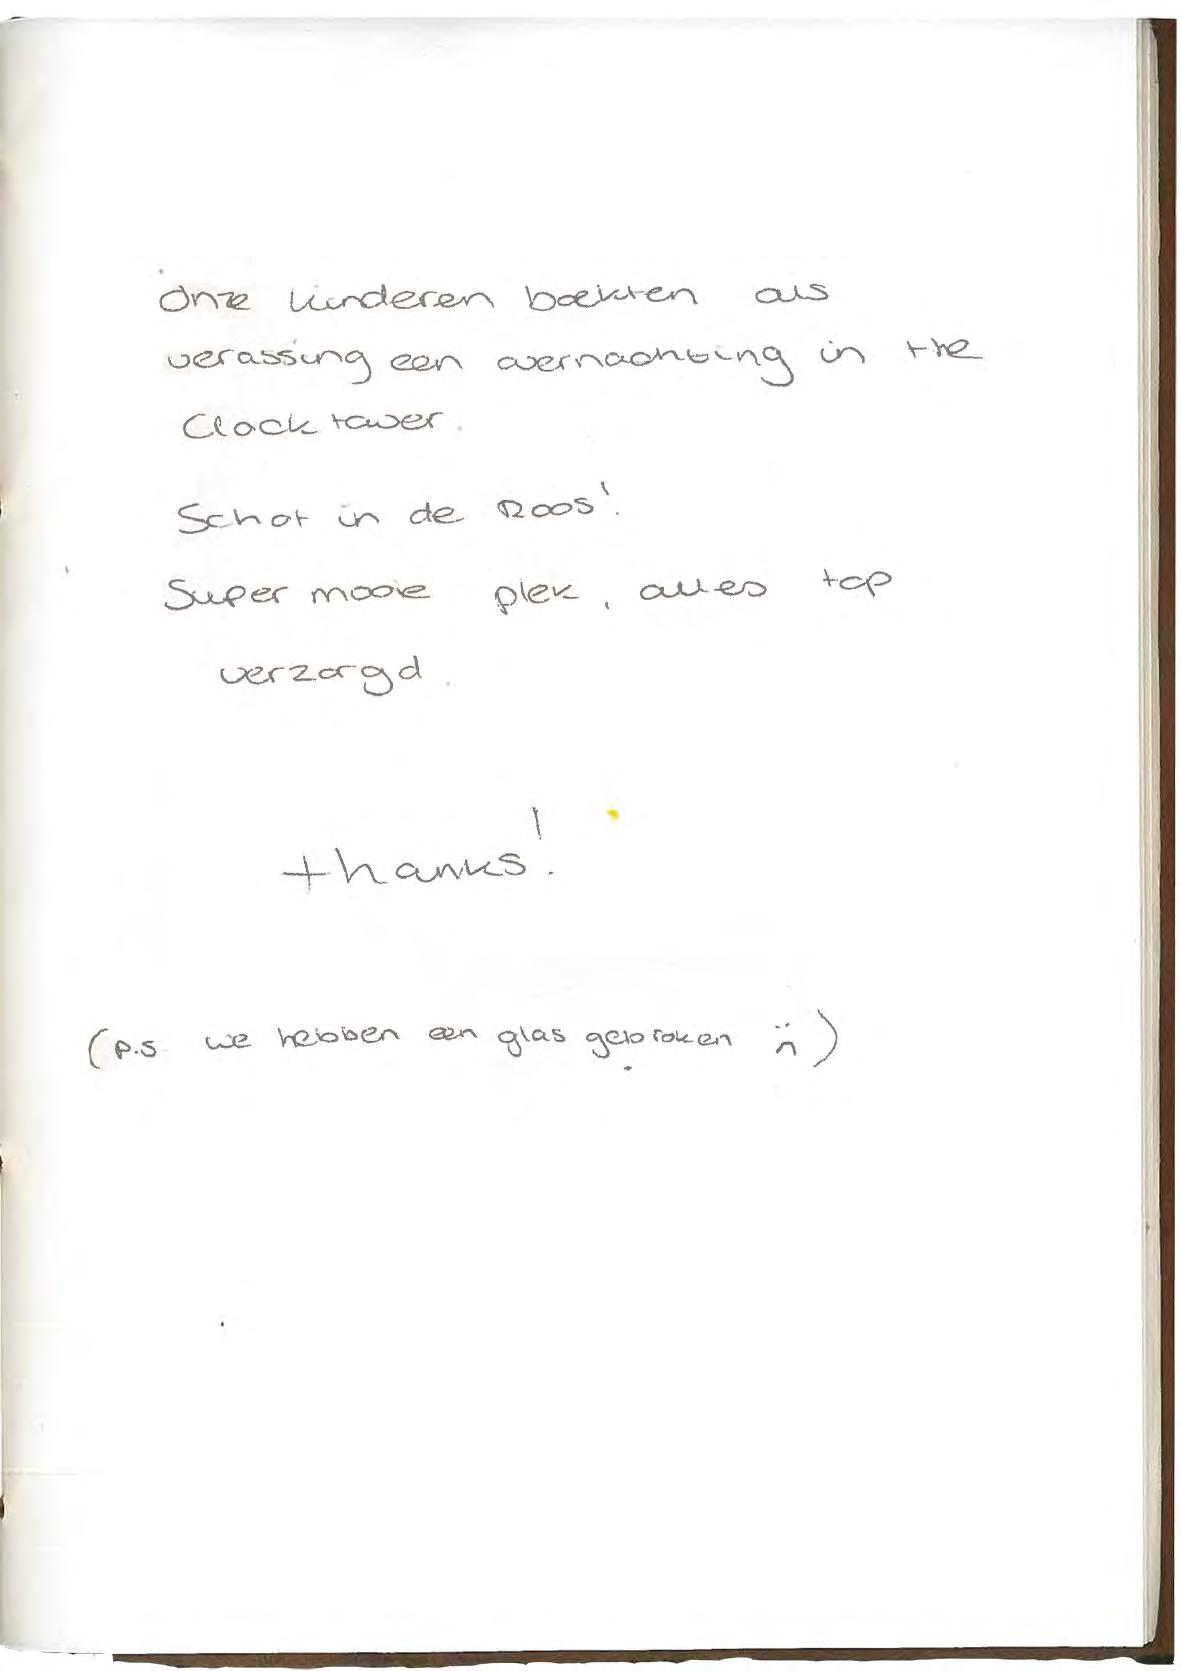 Onze kinderen boekten als
verassing een overnachting in the
Clock tower.
Schot in de Roos!
Super mooie plek, alles top
verzorgd.
thanks!
(p.s. we hebben een glas gebroken :()